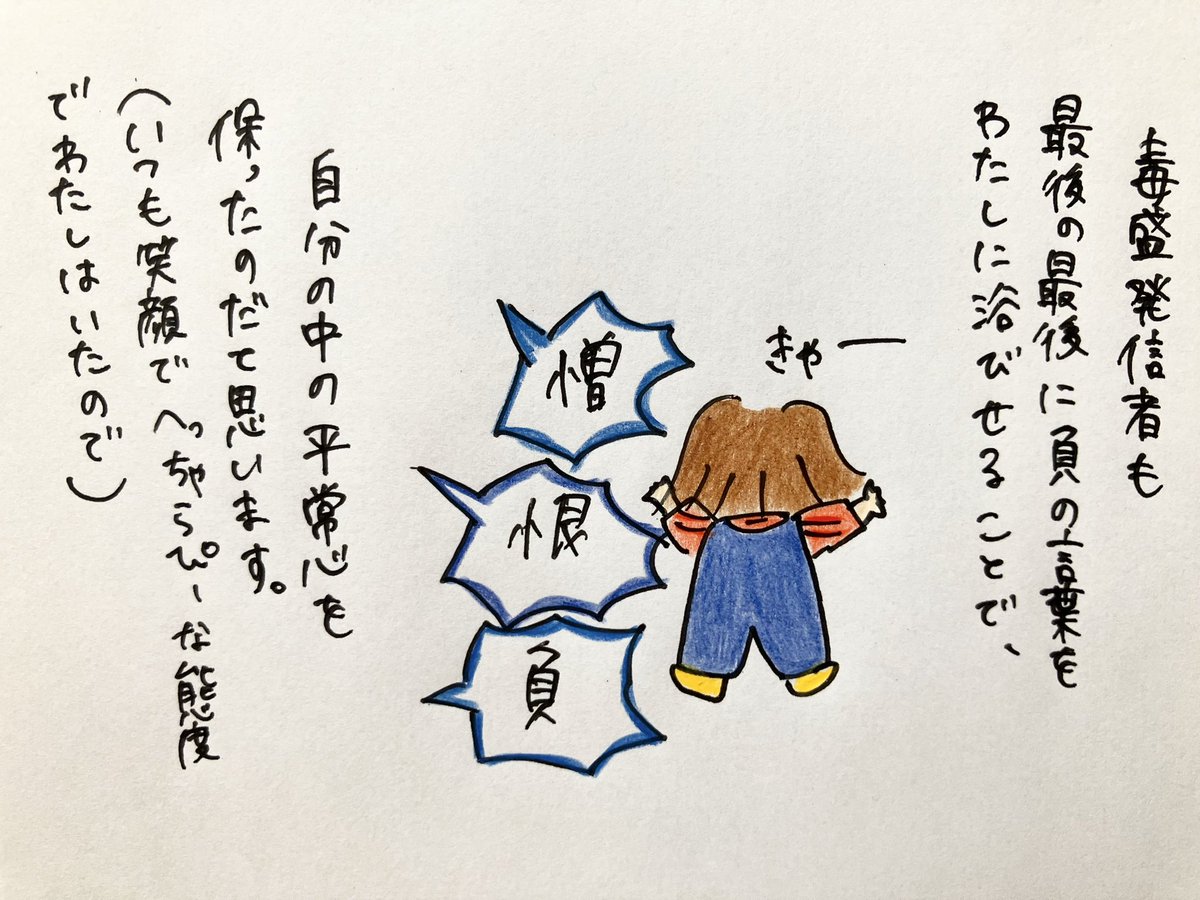 毒盛発信者も
最後の最後に負の言葉を
わたしに浴びせることで、
きゃー
憎
恨
負
自分の中の平常心を
保ったのだて思います。
(いつも笑顔でへっちゃらぴーな態度
でわたしはいたので)